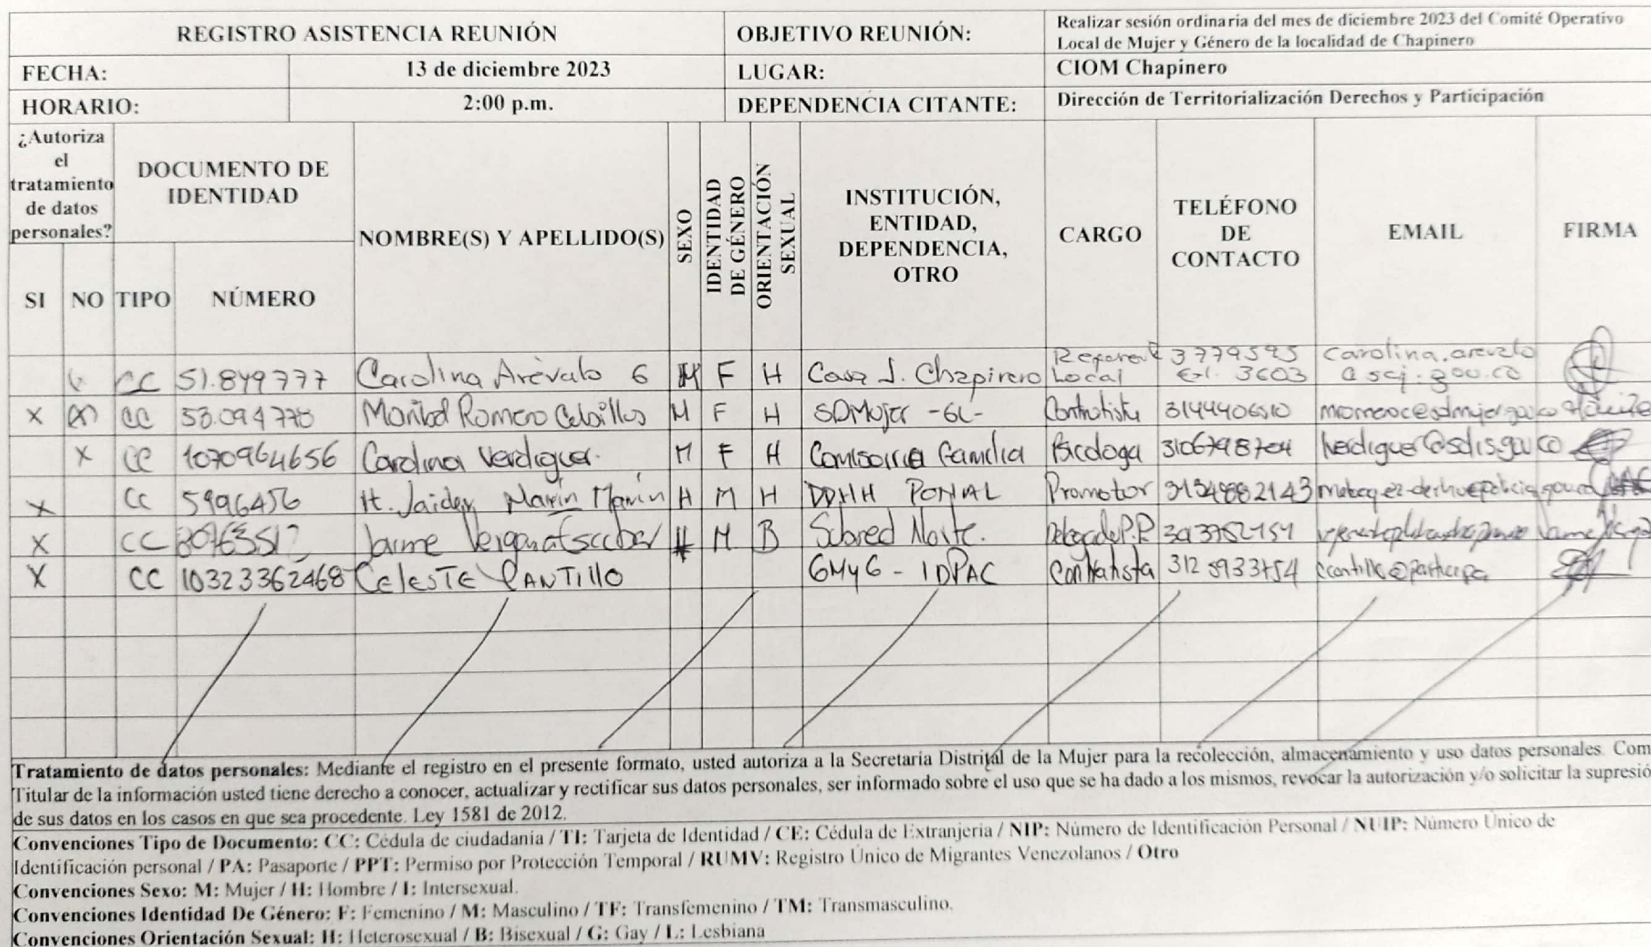 REGISTRO ASISTENCIA REUNIÓN OBJETIVO REUNIÓN: Realizar sesión ordinaria del mes de diciembre 2023 del Comité Operativo
Local de Mujer y Género de la localidad de Chapinero
FECHA: 13 de diciembre 2023 LUGAR: CIOM Chapinero
HORARIO: 2:00 p.m. DEPENDENCIA CITANTE: Dirección de Territorialización Derechos y Participación
¿Autoriza
el
tratamiento
de datos
personales?
DOCUMENTO DE
IDENTIDAD
NOMBRE(S) Y APELLIDO(S)
SEXO
IDENTIDAD
DE GÉNERO
ORIENTACIÓN
SEXUAL
INSTITUCIÓN,
ENTIDAD,
DEPENDENCIA,
OTRO
CARGO
TELÉFONO
DE
CONTACTO
EMAIL
FIRMA
SI NO TIPO NÚMERO
CC 51.849777 Carolina Arévalo G M F H Casa J. Chapinero Local 3779595 Ext. 3603 carolina.arevalo
@scj.gov.co
x CC 53.094770 Maribel Romero M F H SDMujer -GL- Contratista 3144406510
x CC 1070964656 Carolina Verdiguer. M F H Comisaria familia Psicologa
x CC 5996456 H. Jaider Marín Marín H M H DDHH PONAL Promotor
X CC Jaime Vergara Escobar H M B Subred Norte.
X CC 10323362468 CELESTE CANTILLO GMyG - IDPAC Contratista ccantillo@participa
Tratamiento de datos personales: Mediante el registro en el presente formato, usted autoriza a la Secretaria Distrital de la Mujer para la recolección, almacenamiento y uso datos personales. Com
Titular de la información usted tiene derecho a conocer, actualizar y rectificar sus datos personales, ser informado sobre el uso que se ha dado a los mismos, revocar la autorización y/o solicitar la supresió
de sus datos en los casos en que sea procedente. Ley 1581 de 2012.
Convenciones Tipo de Documento: CC: Cédula de ciudadanía / TI: Tarjeta de Identidad / CE: Cédula de Extranjeria / NIP: Número de Identificación Personal / NUIP: Número Único de
Identificación personal / PA: Pasaporte / PPT: Permiso por Protección Temporal / RUMV: Registro Único de Migrantes Venezolanos / Otro
Convenciones Sexo: M: Mujer / H: Hombre / I: Intersexual.
Convenciones Identidad De Género: F: Femenino / M: Masculino / TF: Transfemenino / TM: Transmasculino.
Convenciones Orientación Sexual: H: Heterosexual / B: Bisexual / G: Gay / L: Lesbiana